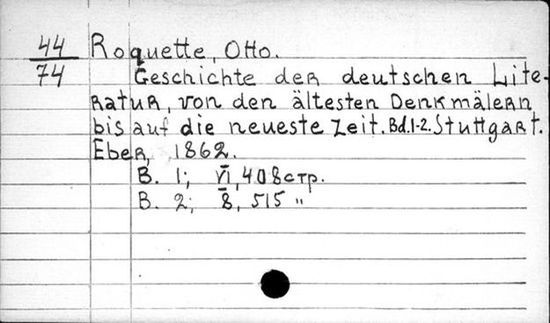 44 Roquette, Otto.
74 Geschichte der deutschen Lite-
ratur, von den ältesten Denkmälern
bis auf die neueste Zeit. Bd.1-2. Stuttgart.
Ebner, 1862.
B. 1; VI, 408 стр.
B. 2; 8, 515 "